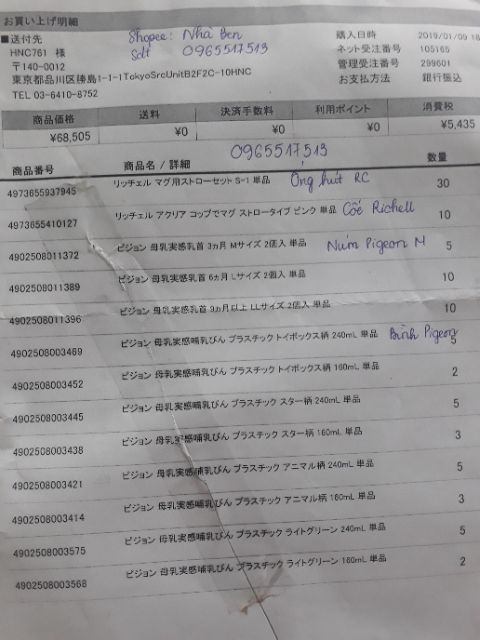 お買い上げ明細
■送付先 Shopee: Nhà Ben 購入日時 2019/01/09 18
HNC761 様 Sđt 0965517513 ネット受注番号 105165
〒140-0012 管理受注番号 299601
東京都品川区勝島1-1-1TokyoSrcUnitB2F2C-10HNC お支払方法 銀行振込
TEL 03-6410-8752
商品価格 送料 決済手数料 利用ポイント 消費税
¥68,505 ¥0 ¥0 ¥0 ¥5,435
0965517513
商品番号 商品名 / 詳細 数量
4973655937945 リッチェル マグ用ストローセット S-1 単品 Ống hút RC 30
4973655410127 リッチェル アクリア コップでマグ ストロータイプ ピンク 単品 Cốc Richell 10
4902508011372 ピジョン 母乳実感乳首 3ヵ月 Mサイズ 2個入 単品 Núm Pigeon M 5
4902508011389 ピジョン 母乳実感乳首 6ヵ月 Lサイズ 2個入 単品 10
4902508011396 ピジョン 母乳実感乳首 9ヵ月以上 LLサイズ 2個入 単品 10
4902508003469 ピジョン 母乳実感哺乳びん プラスチック トイボックス柄 240mL 単品 Bình Pigeon 5
4902508003452 ピジョン 母乳実感哺乳びん プラスチック トイボックス柄 160mL 単品 2
4902508003445 ピジョン 母乳実感哺乳びん プラスチック スター柄 240mL 単品 5
4902508003438 ピジョン 母乳実感哺乳びん プラスチック スター柄 160mL 単品 3
4902508003421 ピジョン 母乳実感哺乳びん プラスチック アニマル柄 240mL 単品 5
4902508003414 ピジョン 母乳実感哺乳びん プラスチック アニマル柄 160mL 単品 3
4902508003575 ピジョン 母乳実感哺乳びん プラスチック ライトグリーン 240mL 単品 5
4902508003568 ピジョン 母乳実感哺乳びん プラスチック ライトグリーン 160mL 単品 2